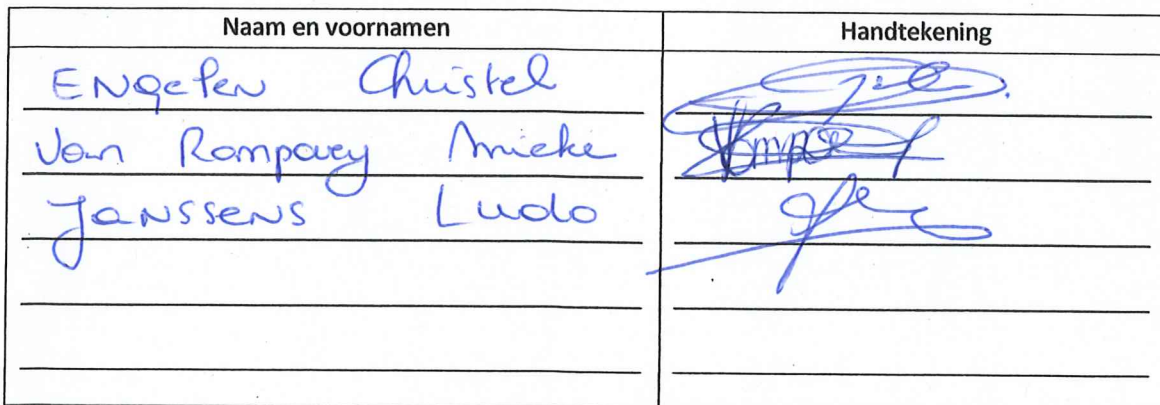 Naam en voornamen Handtekening
Engelen Christel
Van Rompaey Mieke
Janssens Ludo